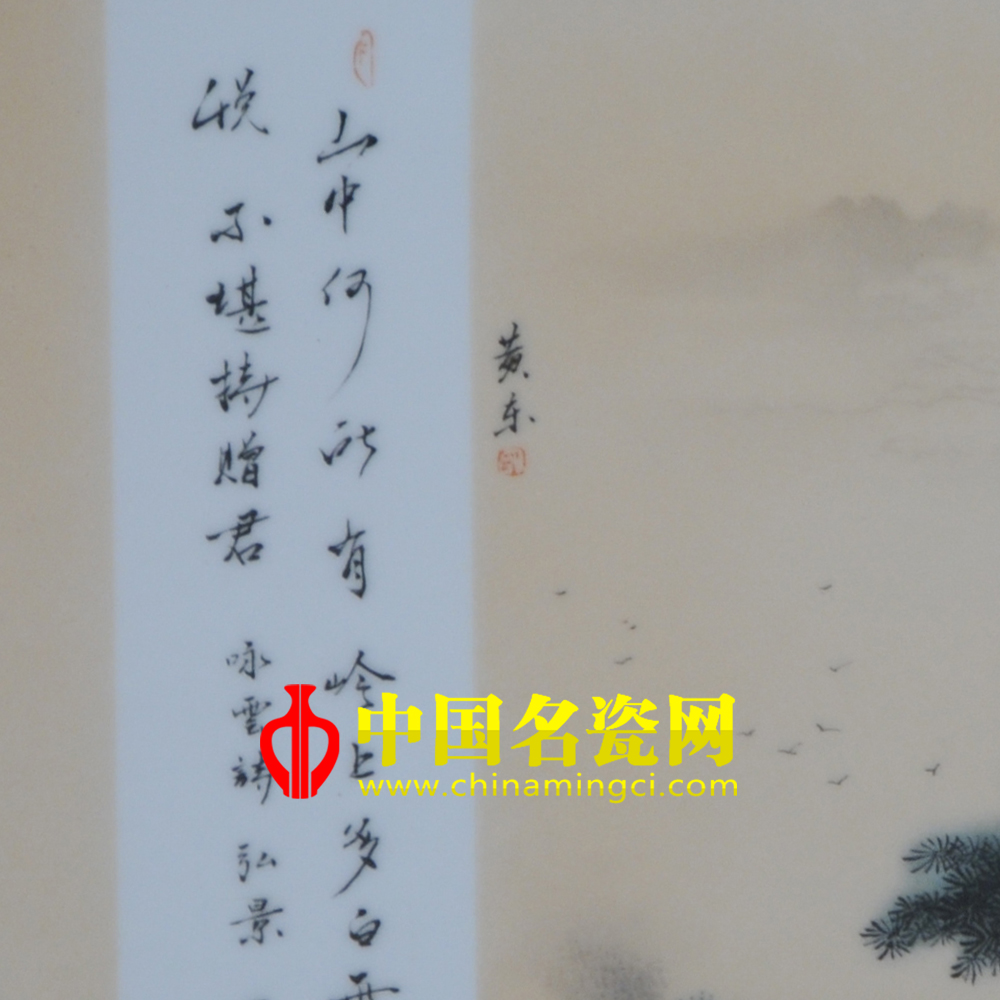 山中何所有岭上多白雲
悦 不堪持贈君 咏雲詩 弘景
黄东
中国名瓷网
www.chinamingci.com